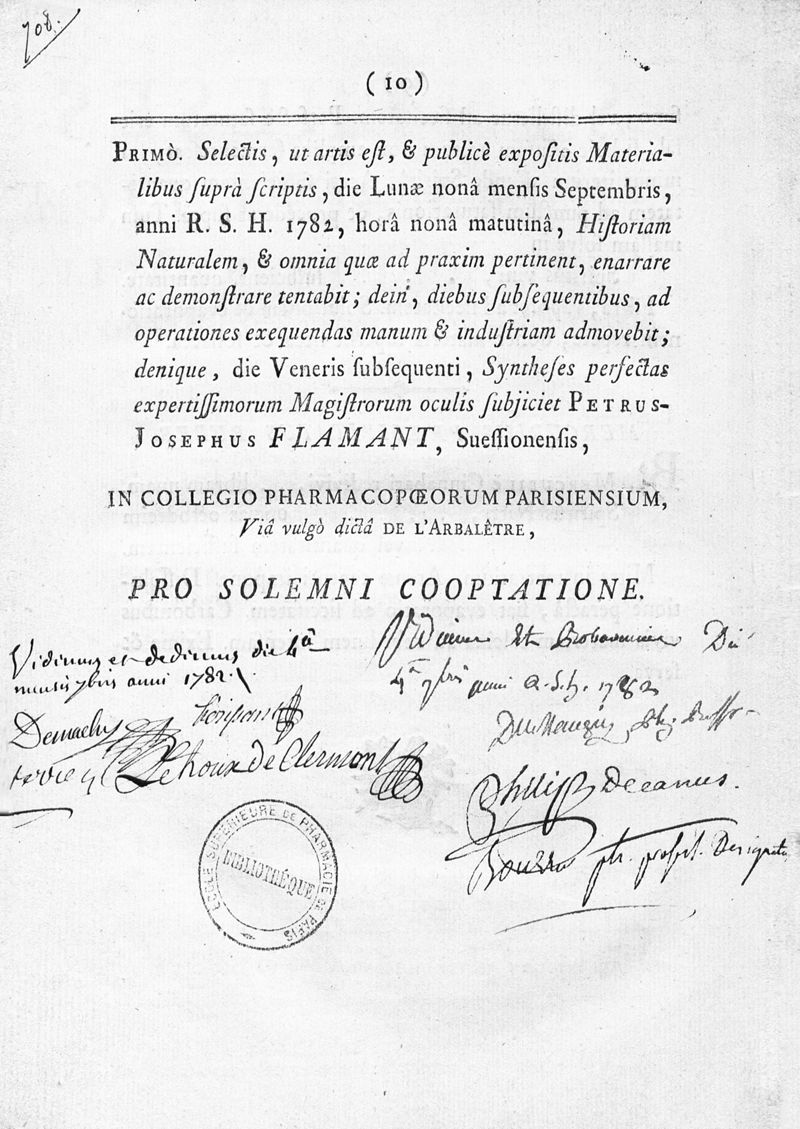 708.
( 10 )
PRIMÒ. Selectis, ut artis eſt, & publicè expoſitis Materia-
libus ſuprà ſcriptis, die Lunæ nonâ menſis Septembris,
anni R. S. H. 1782, horâ nonâ matutinâ, Hiſtoriam
Naturalem, & omnia quæ ad praxim pertinent, enarrare
ac demonſtrare tentabit; dein, diebus ſubſequentibus, ad
operationes exequendas manum & induſtriam admovebit;
denique, die Veneris ſubſequenti, Syntheſes perfectas
expertiſſimorum Magiſtrorum oculis ſubjiciet PETRUS-
JOSEPHUS FLAMANT, Sueſſionenſis,
IN COLLEGIO PHARMACOPŒORUM PARISIENSIUM,
Viâ vulgò dictâ DE L'ARBALÊTRE,
PRO SOLEMNI COOPTATIONE.
Vidimus et dedimus die 4â
mensis 7bris anni 1782.
Demachy
Lehoux de Clermont
Vidimus Et Probavimus Die
4â 7bris anni R. S. h. 1782
Philip Decanus.
Bourru ph. profes. Designatus
ECOLE SUPÉRIEURE DE PHARMACIE DE PARIS
BIBLIOTHÈQUE